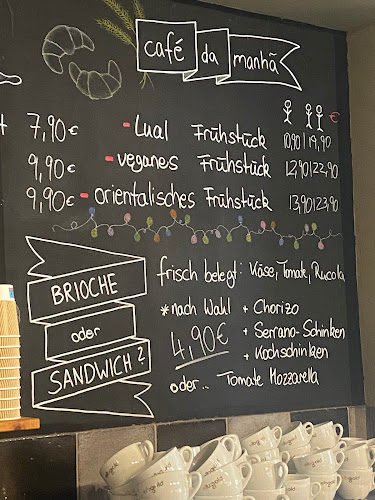 café da manhã
7,90€ - Lual Frühstück 10,90 | 19,90 €
9,90€ - veganes Frühstück 12,90 | 22,90
9,90€ - orientalisches Frühstück 13,90 | 23,90
BRIOCHE
oder
SANDWICH?
frisch belegt: Käse, Tomate, Rucola
*nach Wahl + Chorizo
4,90€ + Serrano-Schinken
+ Kochschinken
oder... Tomate Mozzarella